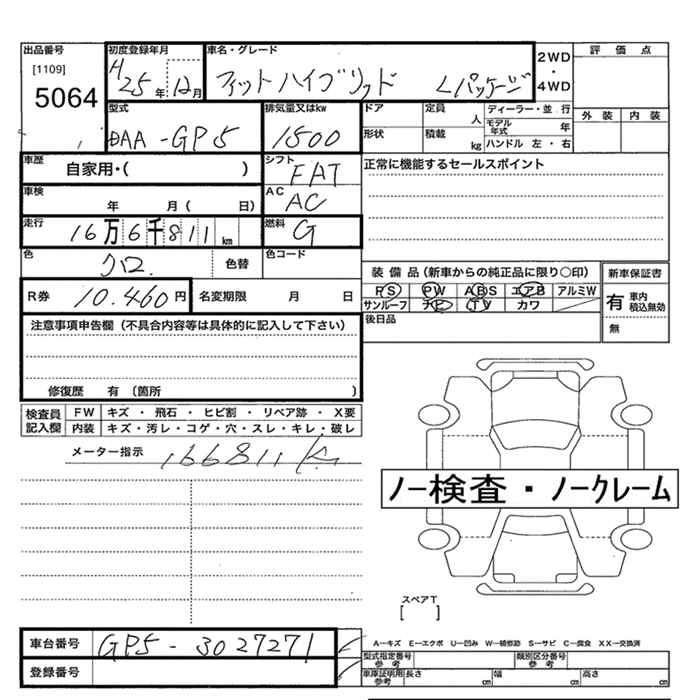 出品番号 初度登録年月 車名・グレード 2WD・4WD 評価点
[1109] 5064 H25年12月 フィットハイブリッド Lパッケージ
型式 排気量又はkw ドア 定員 人 ディーラー・並行 外装 内装
DAA-GP5 1500 形状 積載 kg モデル年式 年 ハンドル 左・右
車歴 自家用・( ) シフト FAT 正常に機能するセールスポイント
車検 年 月( 日) AC AC
走行 16万6千811km 燃料 G
色 クロ 色替 色コード
装備品(新車からの純正品に限り○印) 新車保証書
R券 10.460円 名変期限 月 日 PS PW ABS エアB アルミW 有 車内積込無効
サンルーフ ナビ TV カワ 無
注意事項申告欄(不具合内容等は具体的に記入して下さい) 後日品
修復歴 有(箇所 )
検査員記入欄 FW キズ・飛石・ヒビ割・リペア跡・X要
内装 キズ・汚レ・コゲ・穴・スレ・キレ・破レ
メーター指示 166811K
ノー検査・ノークレーム
スペアT
[ ]
車台番号 GP5-3027271 A−キズ E−エクボ U−凹み W−補修跡 S−サビ C−腐食 XX−交換済
型式指定番号 参考 類別区分番号 参考
登録番号 車庫証明用 参考 長さ cm 幅 cm 高さ cm